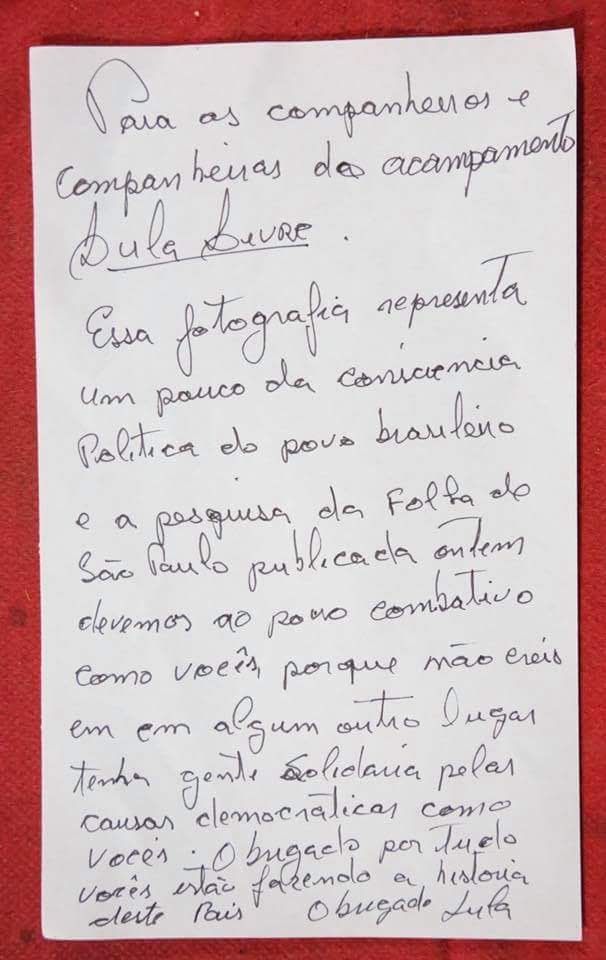 Para as companheiros e
companheiras do acampamento
Lula Livre.
Essa fotografia representa
um pouco da consciencia
Politica do povo brasileiro
e a pesquisa da Folha de
São Paulo publicada ontem
devemos ao povo combativo
como vocês, porque não creio
em em algum outro lugar
tenha gente solidaria pelas
causas democráticas como
vocês. Obrigado por tudo
vocês estão fazendo a historia
deste Pais Obrigado Lula